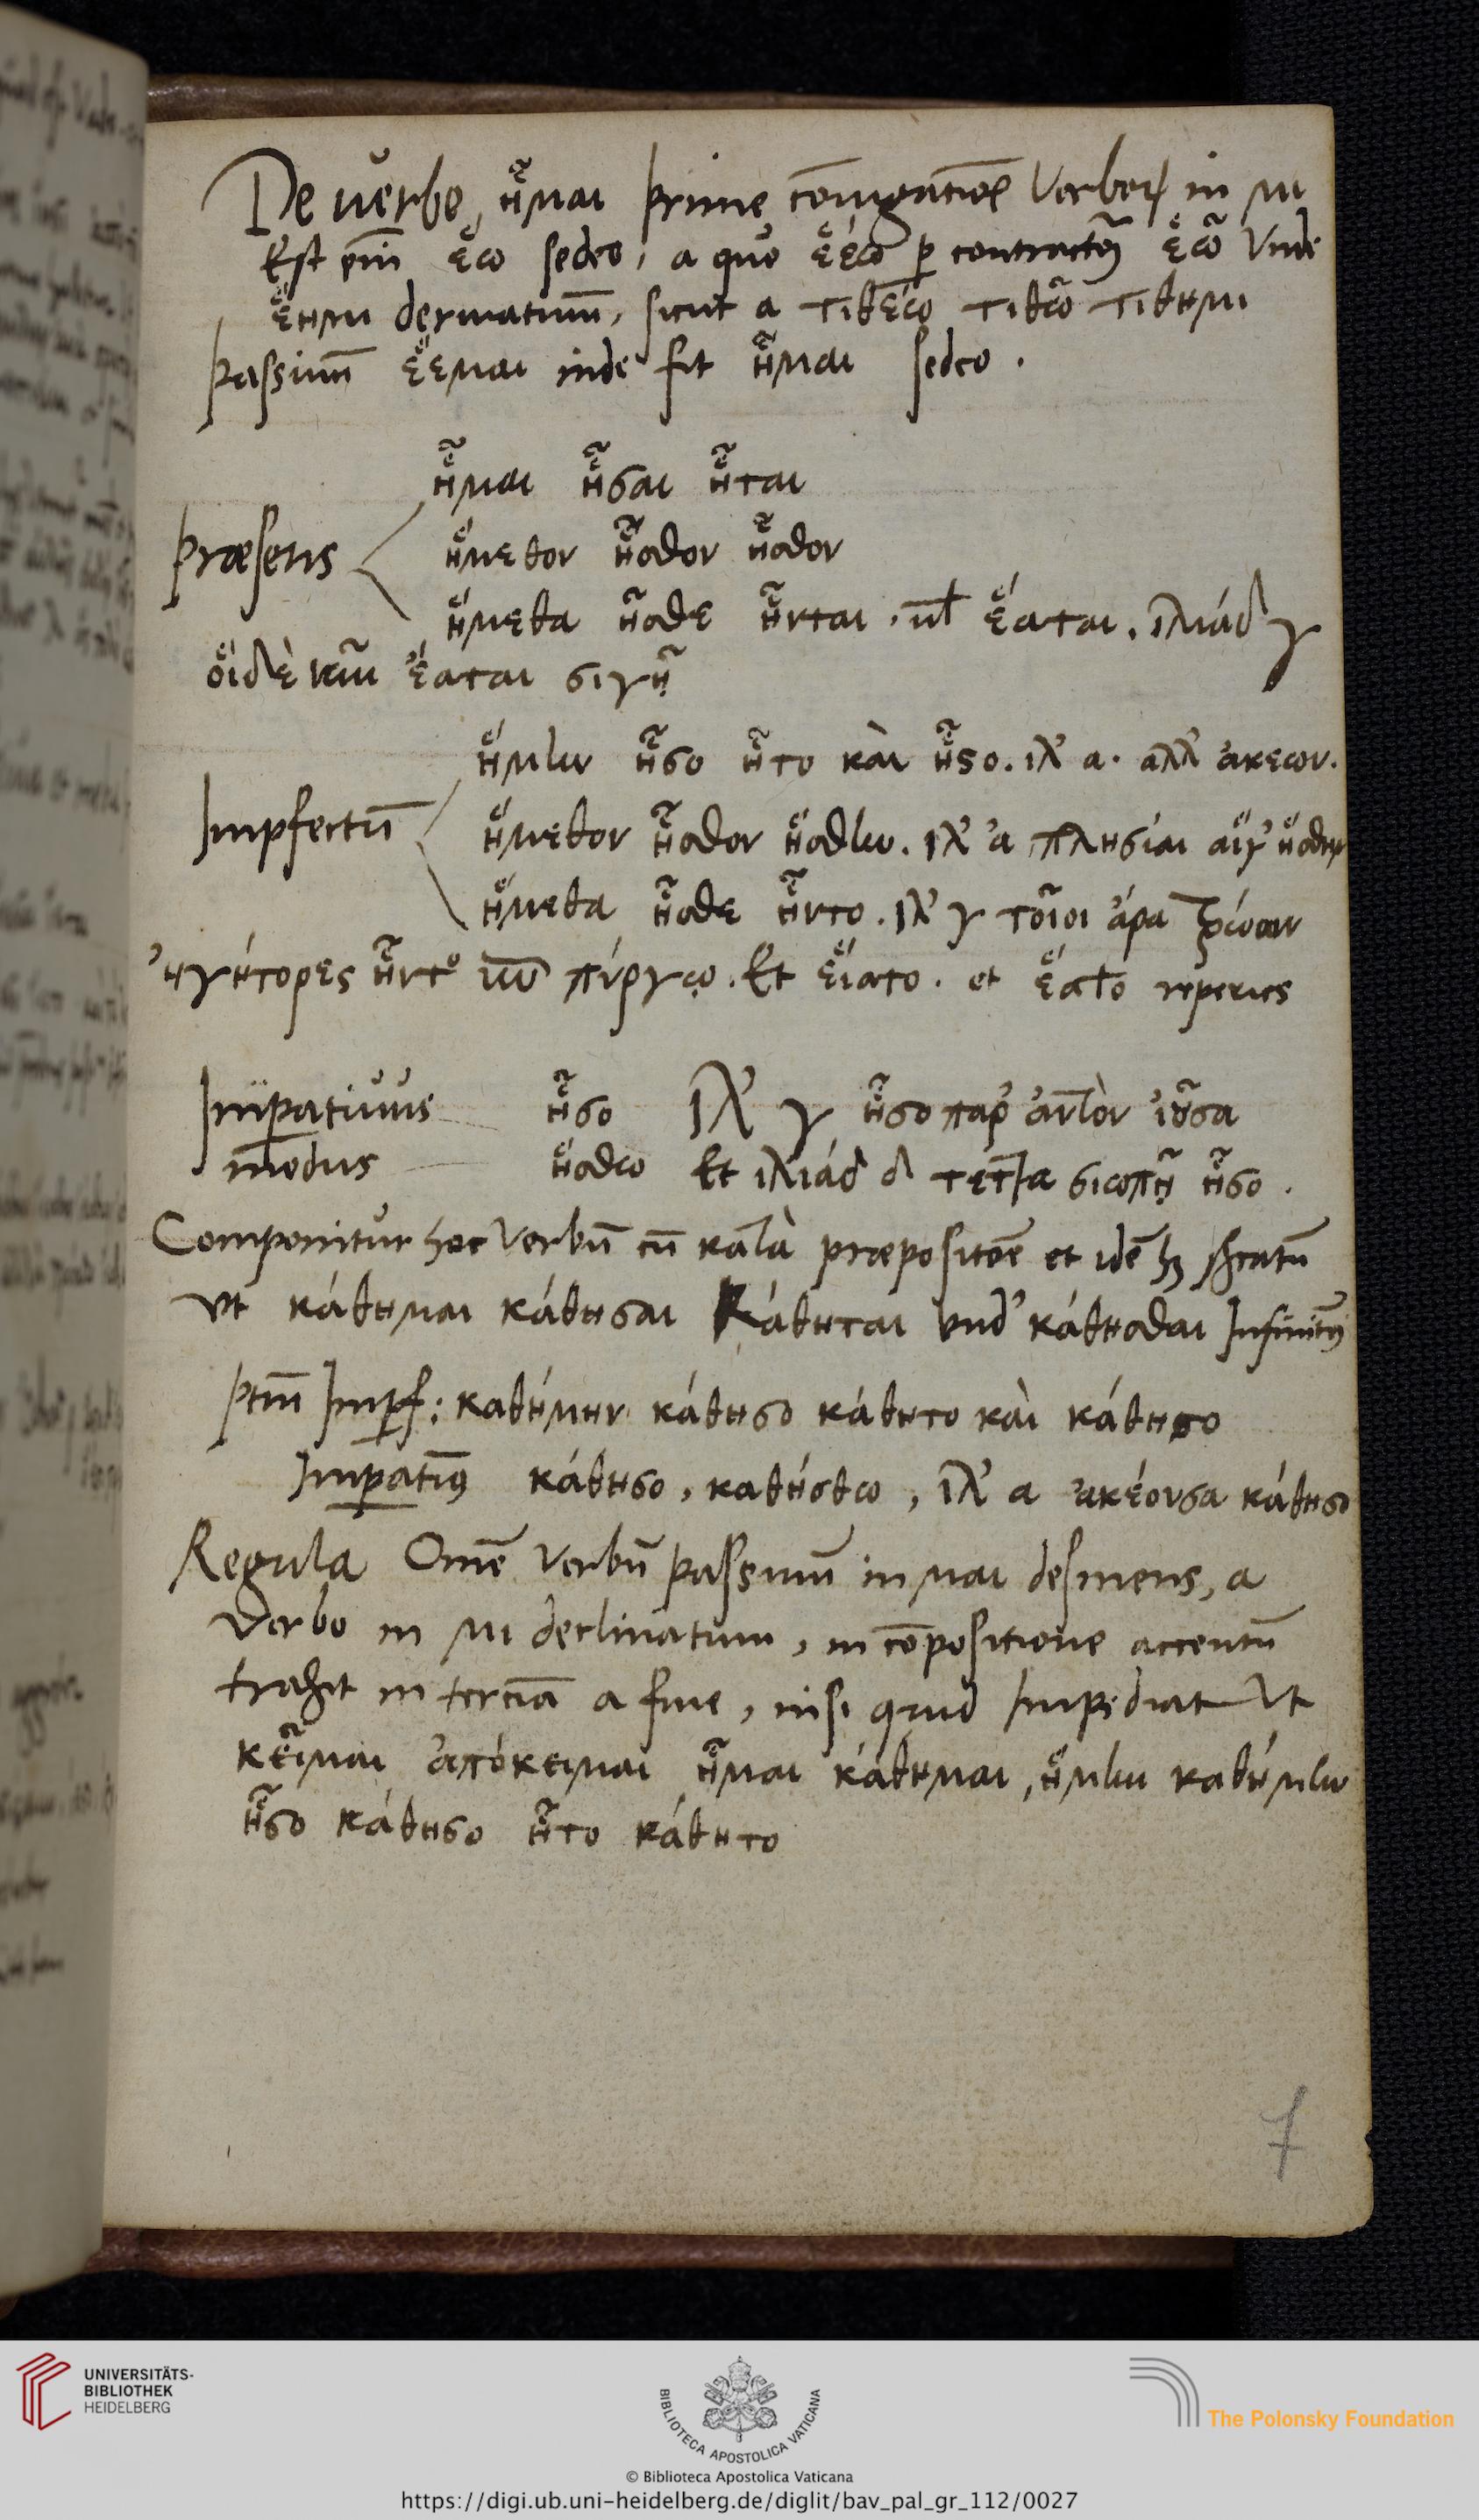 De verbo ἧμαι prime coniugatiōis Verborꝝ in μι
Est em̄ ἕω sedeo, a quo ἑέω ꝑ contractōꝫ ἑῶ Vnde
ἕημι deriuatiuum̄, sicut a τιθέω τιθῶ τίθημι
passiuum̄ ἕεμαι inde fit ἧμαι sedeo.
ἧμαι ἧσαι ἧται
Præsens ἥμεθον ἧσθον ἧσθον
ἥμεθα ἧσθε ἧνται. vꝉ ἕαται. ἰλιάδ γ
οἵ δὲ ἔαται σιγῇ
ἥμην ἧσο ἧτο καὶ ἧστο. ιλ α. αλλ ἀκεων.
Impfectū ἥμεθον ἧσθον ἥσθην. ιλ α πλησίαι αἵγ ἥσθην
ἥμεθα ἧσθε ἧντο. ιλ γ τοῖοι ἄρα τρώων
ἠγήτορες ἧντο πύργῳ. Et εἵατο. et ἕατο reperies
Impatiuus ἧσο ιλ γ ἧσο παρ αὐτὸν ἰοῦσα
modus ἥσθω Et ιλιάδ δ τέττα σιωπῇ ἧσο.
Componitur hoc Verbū cū κατὰ præpositōe et idē hꝫ sigtatū
Vt κάθημαι κάθησαι Κάθηται vnd κάθησθαι Infinitꝰ
ptm̄ Impf: καθήμην κάθησο κάθητο καὶ κάθηστο
Impatiꝰ κάθησο, καθήσθω, ιλ α ἀκέουσα κάθησο
Regula Omē Verbū passiuū in μαι desinens, a
Verbo in μι declinatum, in cōpositione accentū
trahit in terciā a fine, nisi quid Impediat Vt
κεῖμαι ἀπόκειμαι ἧμαι κάθημαι, ἥμην καθήμην
ἧσο κάθησο ἧτο κάθητο
7
UNIVERSITÄTS-
BIBLIOTHEK
HEIDELBERG
BIBLIOTECA APOSTOLICA VATICANA
The Polonsky Foundation
© Biblioteca Apostolica Vaticana
https://digi.ub.uni-heidelberg.de/diglit/bav_pal_gr_112/0027